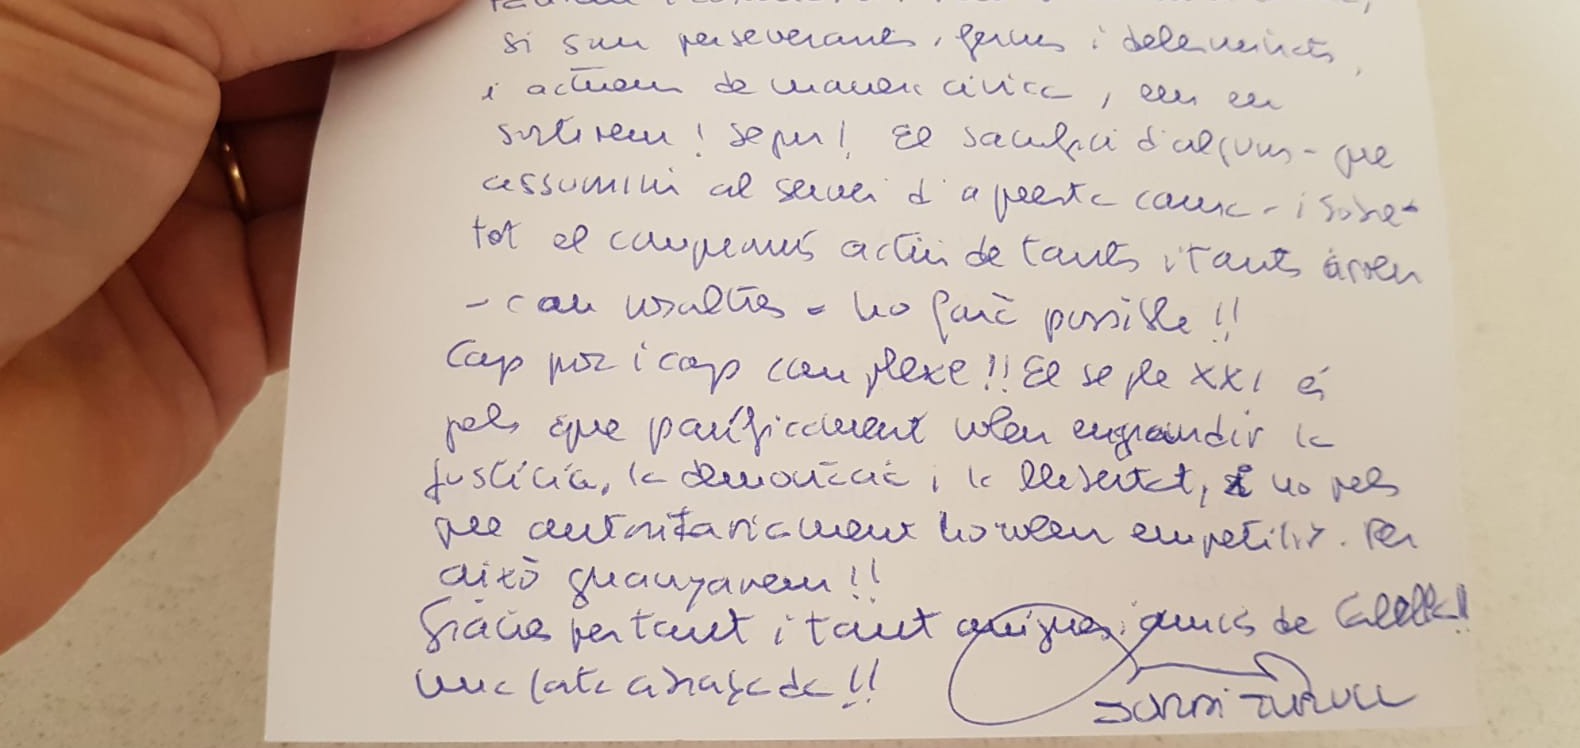 si som perseverants, ferms i determinats,
i actuem de manera cívica, ens en
sortirem! Segur! El sacrifici d'alguns - que
assumim al servei d'aquesta causa - i sobre-
tot el compromís actiu de tants i tants arreu
- com vosaltres - ho farà possible!!
Cap por i cap complexe!! El segle XXI és
pels que pacíficament volen engrandir la
justícia, la democràcia i la llibertat, i no pels
que autoritàriament ho volen empetitir. Per
això guanyarem!!
Gràcies per tant i tant amigues i amics de Calella!!
Una forta abraçada!!
Jordi Turull